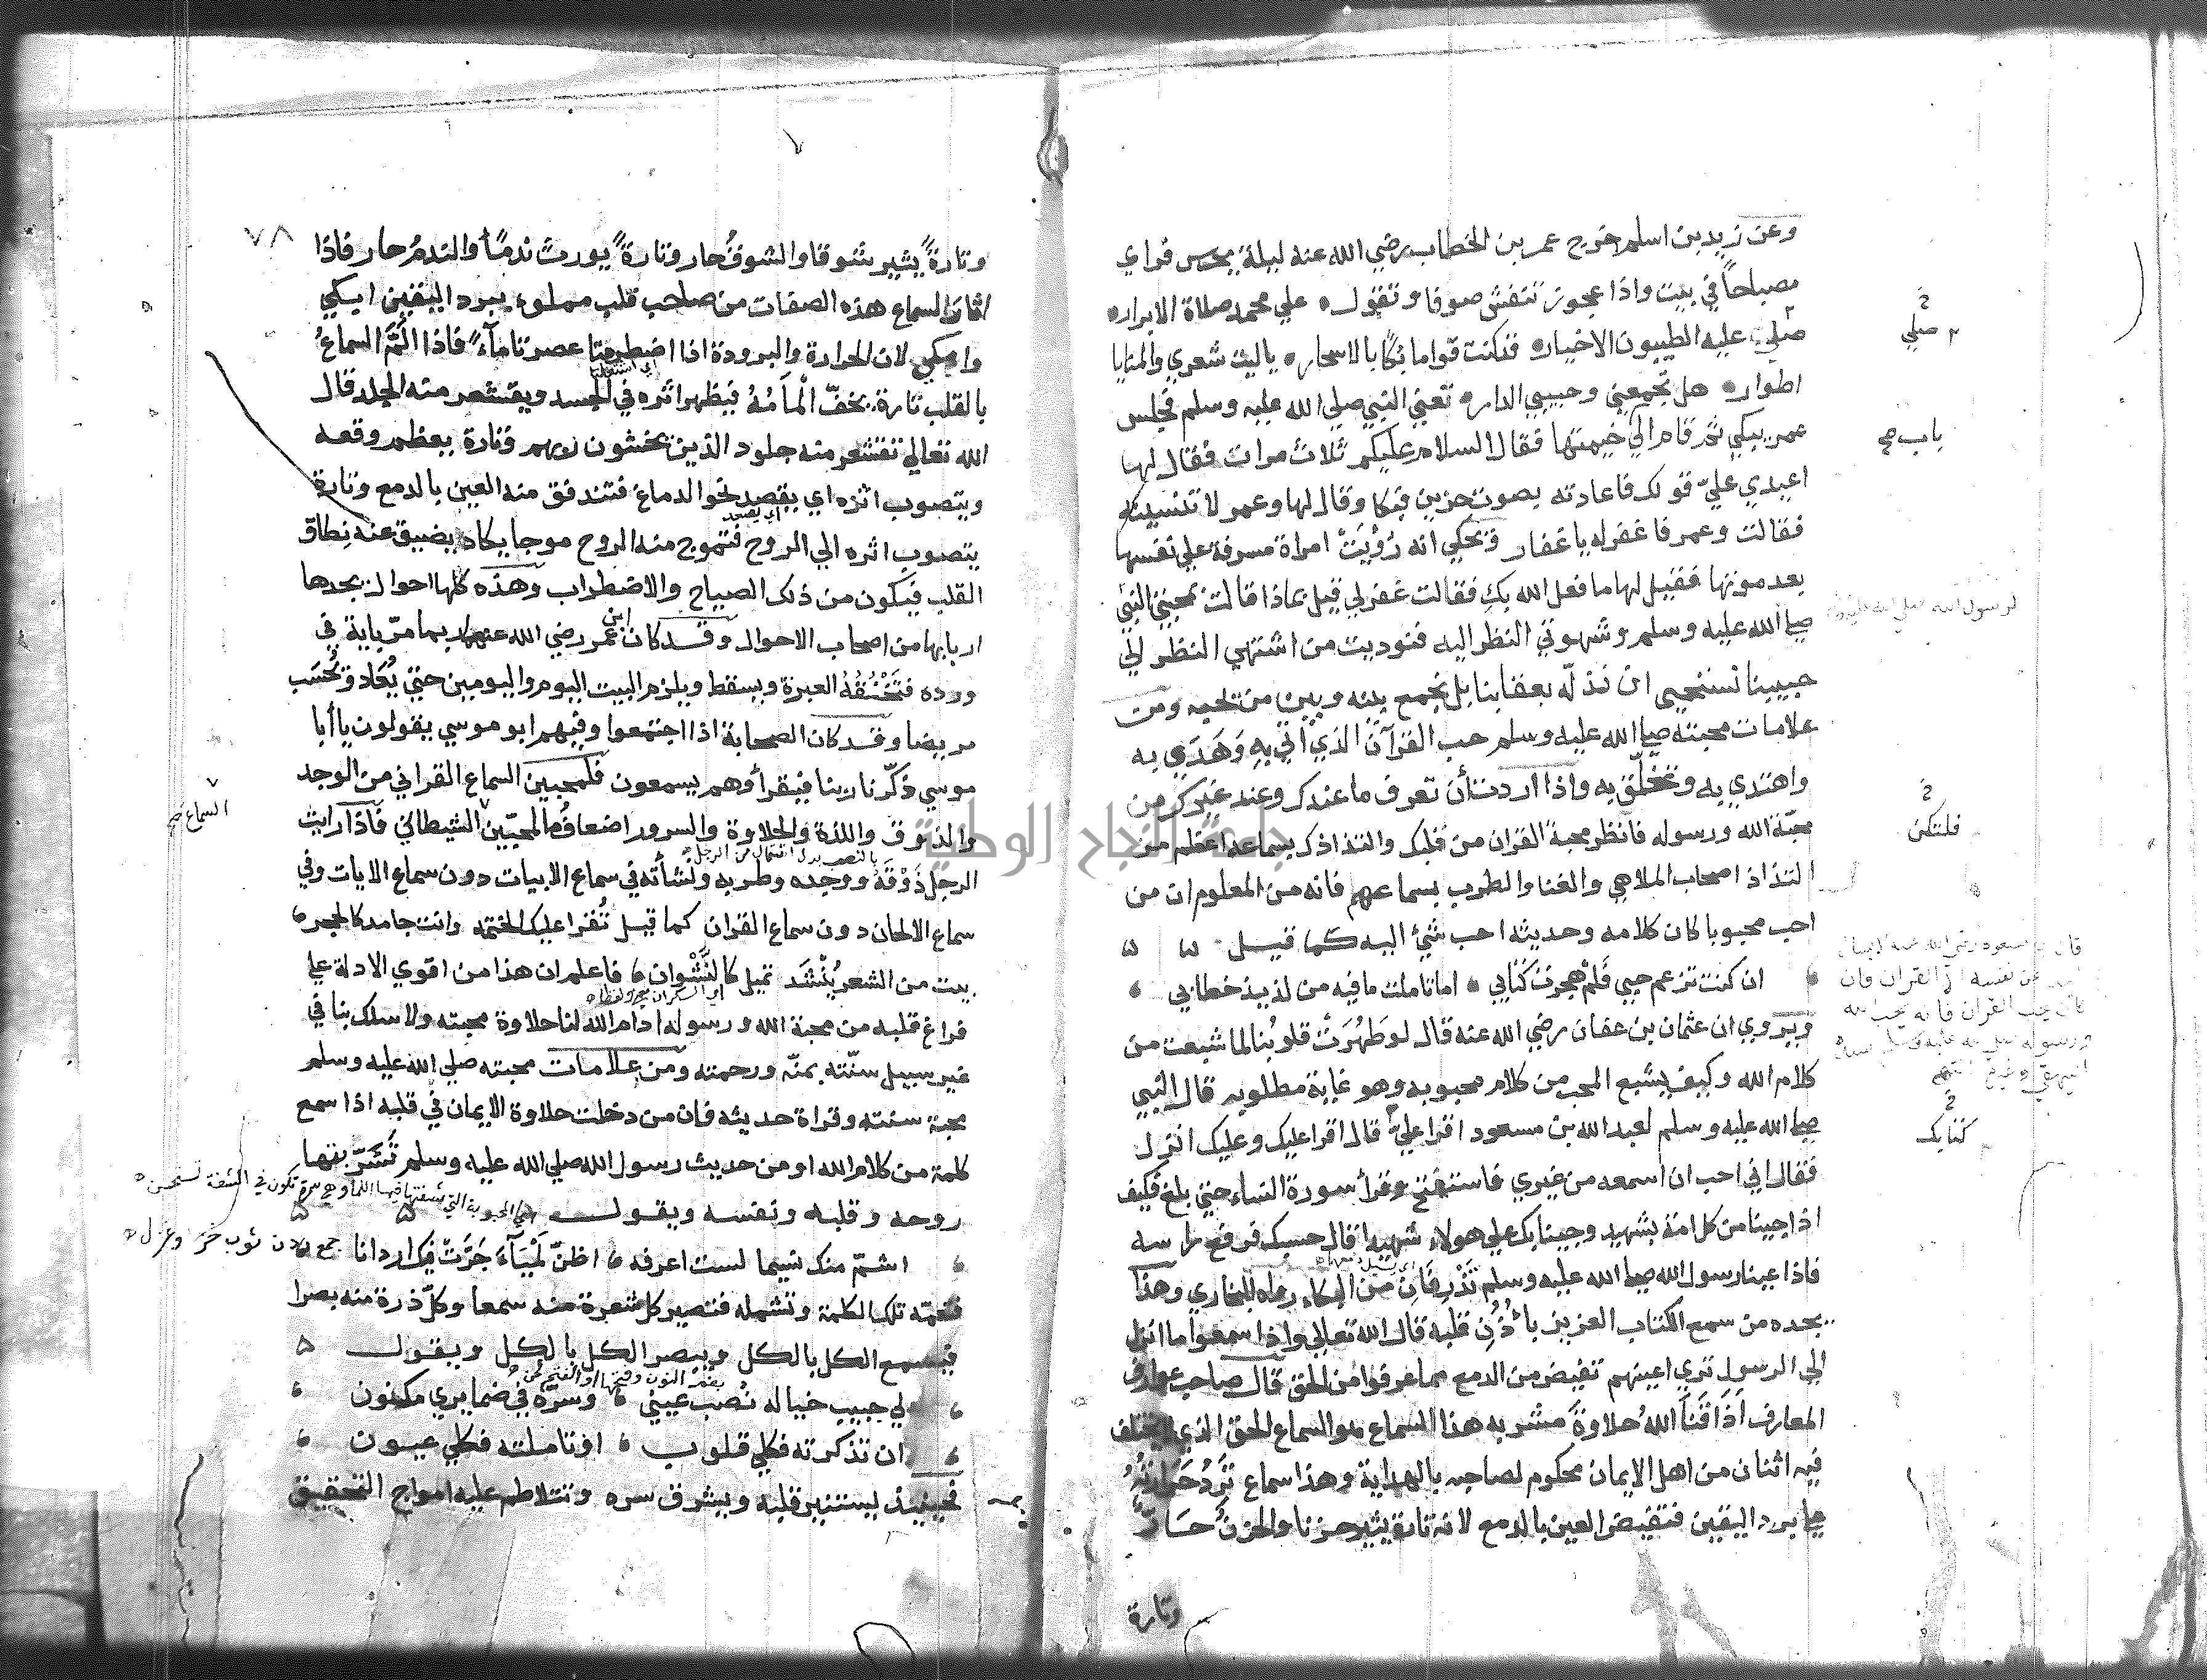 وعن زيد بن اسلم خرج عمر بن الخطاب رضي الله عنه ليلة يحرس فراي
مصباحا في بيت واذا عجوز تنفش صوفا وتقول علي محمد صلاة الابرار
صلي عليه الطيبون الاخيار قد كنت قواما بكا بالاسحار يا ليت شعري والمنايا
اطوار هل تجمعني وحبيبي الدار تعني النبي صلي الله عليه وسلم فجلس
عمر يبكي ثم قام الي خيمتها فقال السلام عليكم ثلاث مرات فقال لها
اعيدي عليّ قولك فاعادته بصوت حزين فبكا وقال لها وعمر لا تنسيه
فقالت وعمر فاغفر له يا غفار ويحكي انه رُؤيَتْ امراة مسرفة علي نفسها
بعد موتها فقيل لها ما فعل الله بكِ فقالت غفر لي قيل بماذا قالت بمحبتي النبي
صلى الله عليه وسلم وشهوتي النظر اليه فنوديت من اشتهي النظر الي
حبيبنا نستحيي ان نذلّه بعقابنا بل نجمع بينه وبين من تحبه ومن
علامات محبته صلى الله عليه وسلم حب القرآن الذي اتي بِهِ وَهَدَي به
واهتدي به وتخلّق به واذا اردت أن تعرف ما عندك وعند غيرك من
محبّة الله ورسوله فانظر محبة القران من قلبك والتذاذك بسماعه اعظم من
التذاذ اصحاب الملاهي والغنا والطرب بسماعهم فانه من المعلوم ان من
احب محبوبا كان كلامه وحديثه احب شئ اليه كما قيل
ان كنت تزعم حبي فَلِمْ هجرت كتابي اما تاملت ما فيه من لذيذ خطابي
ويروي ان عثمان بن عفان رضي الله عنه قال لو طَهُرَتْ قلوبُنا لما شبعت من
كلام الله وكيف يشبع المحب من كلام محبوبه وهو غاية مطلوبه قال النبي
صلى الله عليه وسلم لعبد الله بن مسعود اقرا عليّ قال اقرا عليك وعليك انزل
فقال اني احب ان اسمعه من غيري فاستفتح وقرأ سورة النساء حتي بلغ فكيف
اذا جينا من كل امة بشهيد وجينا بك علي هولاء شهيدا قال حسبك فرفع راسه
فاذا عينا رسول الله صلى الله عليه وسلم تَذْرِفَانِ من البكاء رواه البخاري وهذا
يجده من سمع الكتاب العزيز بأُذُنِ قلبه قال الله تعالي واذا سمعوا ما انزل
الي الرسول تري اعينهم تفيض من الدمع مما عرفوا من الحق قال صاحب عوارف
المعارف اَذَاقَنَا اللهُ حلاوةَ مشربه هذا السماع هو السماع الحق الذي لا يختلف
فيه اثنان من اهل الايمان محكوم لصاحبه بالهداية وهذا سماع تَرِدُ حَرارتُهُ
علي برد اليقين فتفيض العين بالدمع لانه تارة يثير حزنا والحزنُ حَارّ
وتارة
صلي
باب صح
لرسول الله صلي الله عليه
فلتكن
كتابك
٧٨
وتارةً يثير شوقا والشوقُ حار وتارةً يورث ندمًا والندمُ حار فاذا
اثار السماع هذه الصفات من صاحب قلب مملوء ببرد اليقين ابكي
وابكي لان الحرارة والبرودة اذا اضطرمتا عصرتا مآءً فاذا اَلَمَّ السماعُ
بالقلب تارة يخفّ اِلْمَامُهُ فيظهر اثره في الجسد ويقشعر منه الجلد قال
الله تعالي تقشعر منه جلود الذين يخشون ربهم وتارة يعظم وقعه
ويتصوب اثره اي يقصد نحو الدماغ فتندفق منه العين بالدمع وتارة
اي يصعد
يتصوب اثره الي الروح فتموج منه الروح موجا يكاد يضيق عنه نِطاق
القلب فيكون من ذلك الصياح والاضطراب وهذه كلها احوال يجدها
اربابها من اصحاب الاحوال وقد كان ابن عمر رضي الله عنهما ربما مرّ باية في
ورده فتَخْنُقُهُ العبرة ويسقط ويلزم البيت اليوم واليومين حتي يُعَاد وتُحْسَب
مريضا وقد كان الصحابة اذا اجتمعوا وفيهم ابو موسي يقولون يا أبا
موسي ذكّرنا ربنا فيقرأ وهم يسمعون فلمحبين السماع القراني من الوجد
والذوق واللذة والحلاوة والسرور اضعافُ ما لمحبّين الشيطاني فاذا رايت
السماع صح
بالنصب بدل اشتمال من الرجل
الرجل ذَوْقَهُ ووجده وطربه ونشأته في سماع الابيات دون سماع الايات وفي
سماع الالحان دون سماع القران كما قيل تُقرا عليك الختمه وانت جامد كالحجر
بيت من الشعر يُنْشَد تميل كالنَّشْوان فاعلم ان هذا من اقوي الادلة علي
فراغ قلبه من محبة الله ورسوله ادام الله لنا حلاوة محبته ولا سلك بنا في
غير سبيل سنّته بمنّه ورحمته ومن علامات محبته صلي الله عليه وسلم
محبة سنته وقراة حديثه فان من دخلت حلاوة الايمان في قلبه اذا سمع
كلمة من كلام الله او من حديث رسول الله صلي الله عليه وسلم تَشَرَّبتها
روحه وقلبه ونفسه ويقول
اشمّ منك نسيما لست اعرفه اظنّ لَمْيَآءَ جَرّتْ فيك اردانا
فتعمّه تلك الكلمة وتشمله فتصير كل شعرة منه سمعا وكلّ ذرة منه بصرا
فيسمع الكل بالكل ويبصر الكل بالكل ويقول
لي حبيب خياله نُصْب عيني وسرّه في ضمايري مكنون
ان تذكرته فكلي قلوب او تاملته فكلي عيون
فحينيذ يستنير قلبه ويشرق سره وتتلاطم عليه امواج التحقيق
جامعة النجاح الوطنية